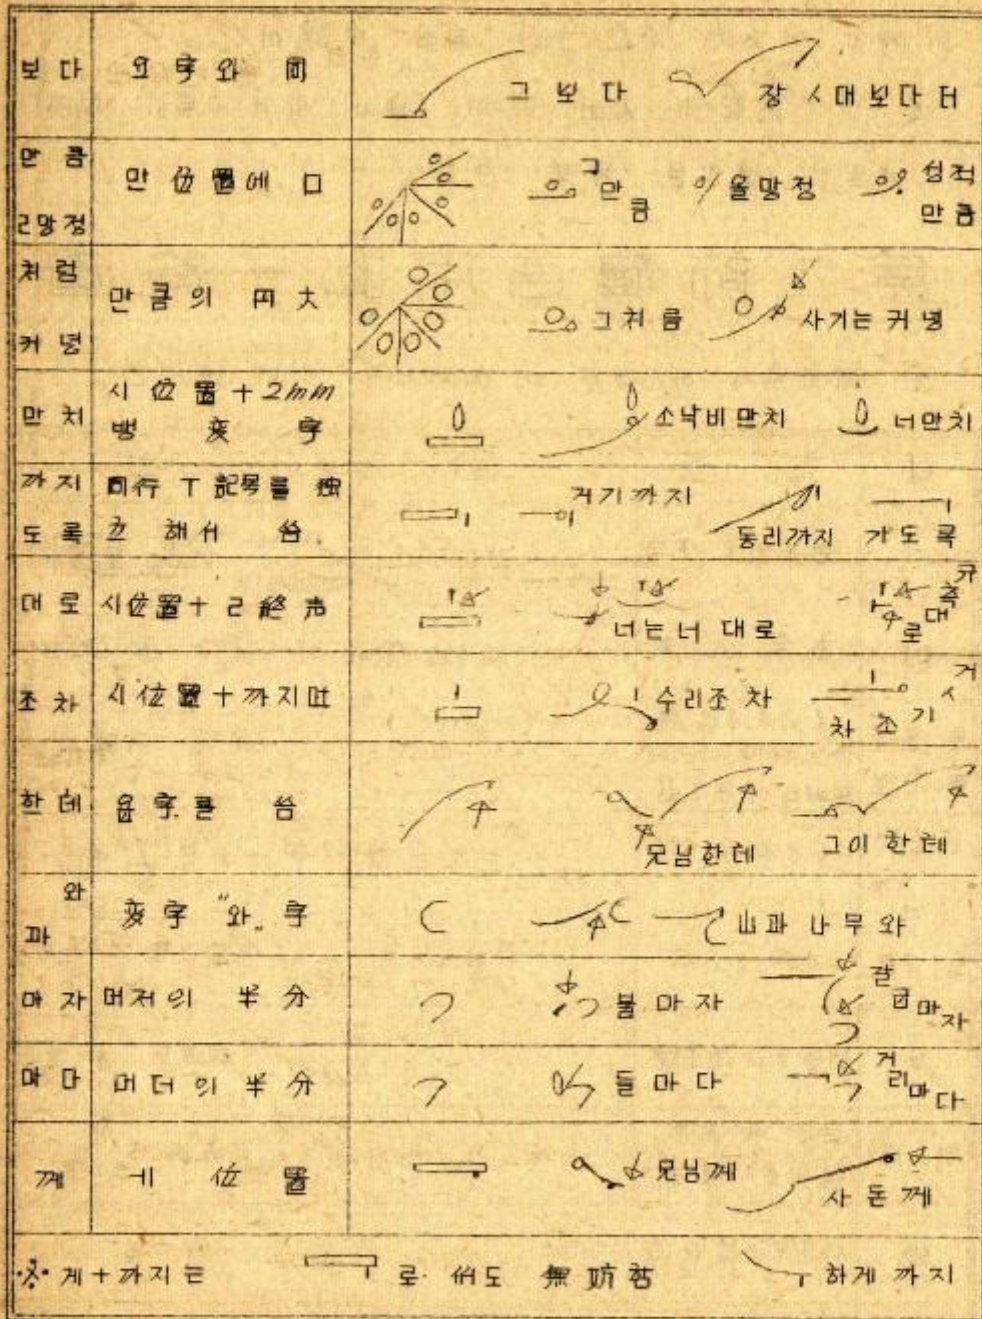 보다 요字와 同 그보다 장시대보다더
만큼
ㄹ망정 만位置에 口 그만큼 올망정 성적만큼
처럼
커녕 만큼의 円大 그처름 사기는커녕
만치 시位置+2mm
뱅 変字 소낙비만치 너만치
까지 同行 T 記号를 独 거기까지
도록 立해서 씀. 동리까지 가도록
대로 시位置+ㄹ終声 너는너대로 규측대로
조차 시位置+까지吐 수리조차 거시기조차
한데 음字를 씀 兄님한테 그이한테
와
과 変字 "와„ 字 山과 나무와
마자 머저의 半分 불마자 갈급마자
마다 머더의 半分 들마다 거리마다
께 ㅔ 位置 兄님께 사돈께
※ 게+까지는 로 써도 無妨함 하게까지